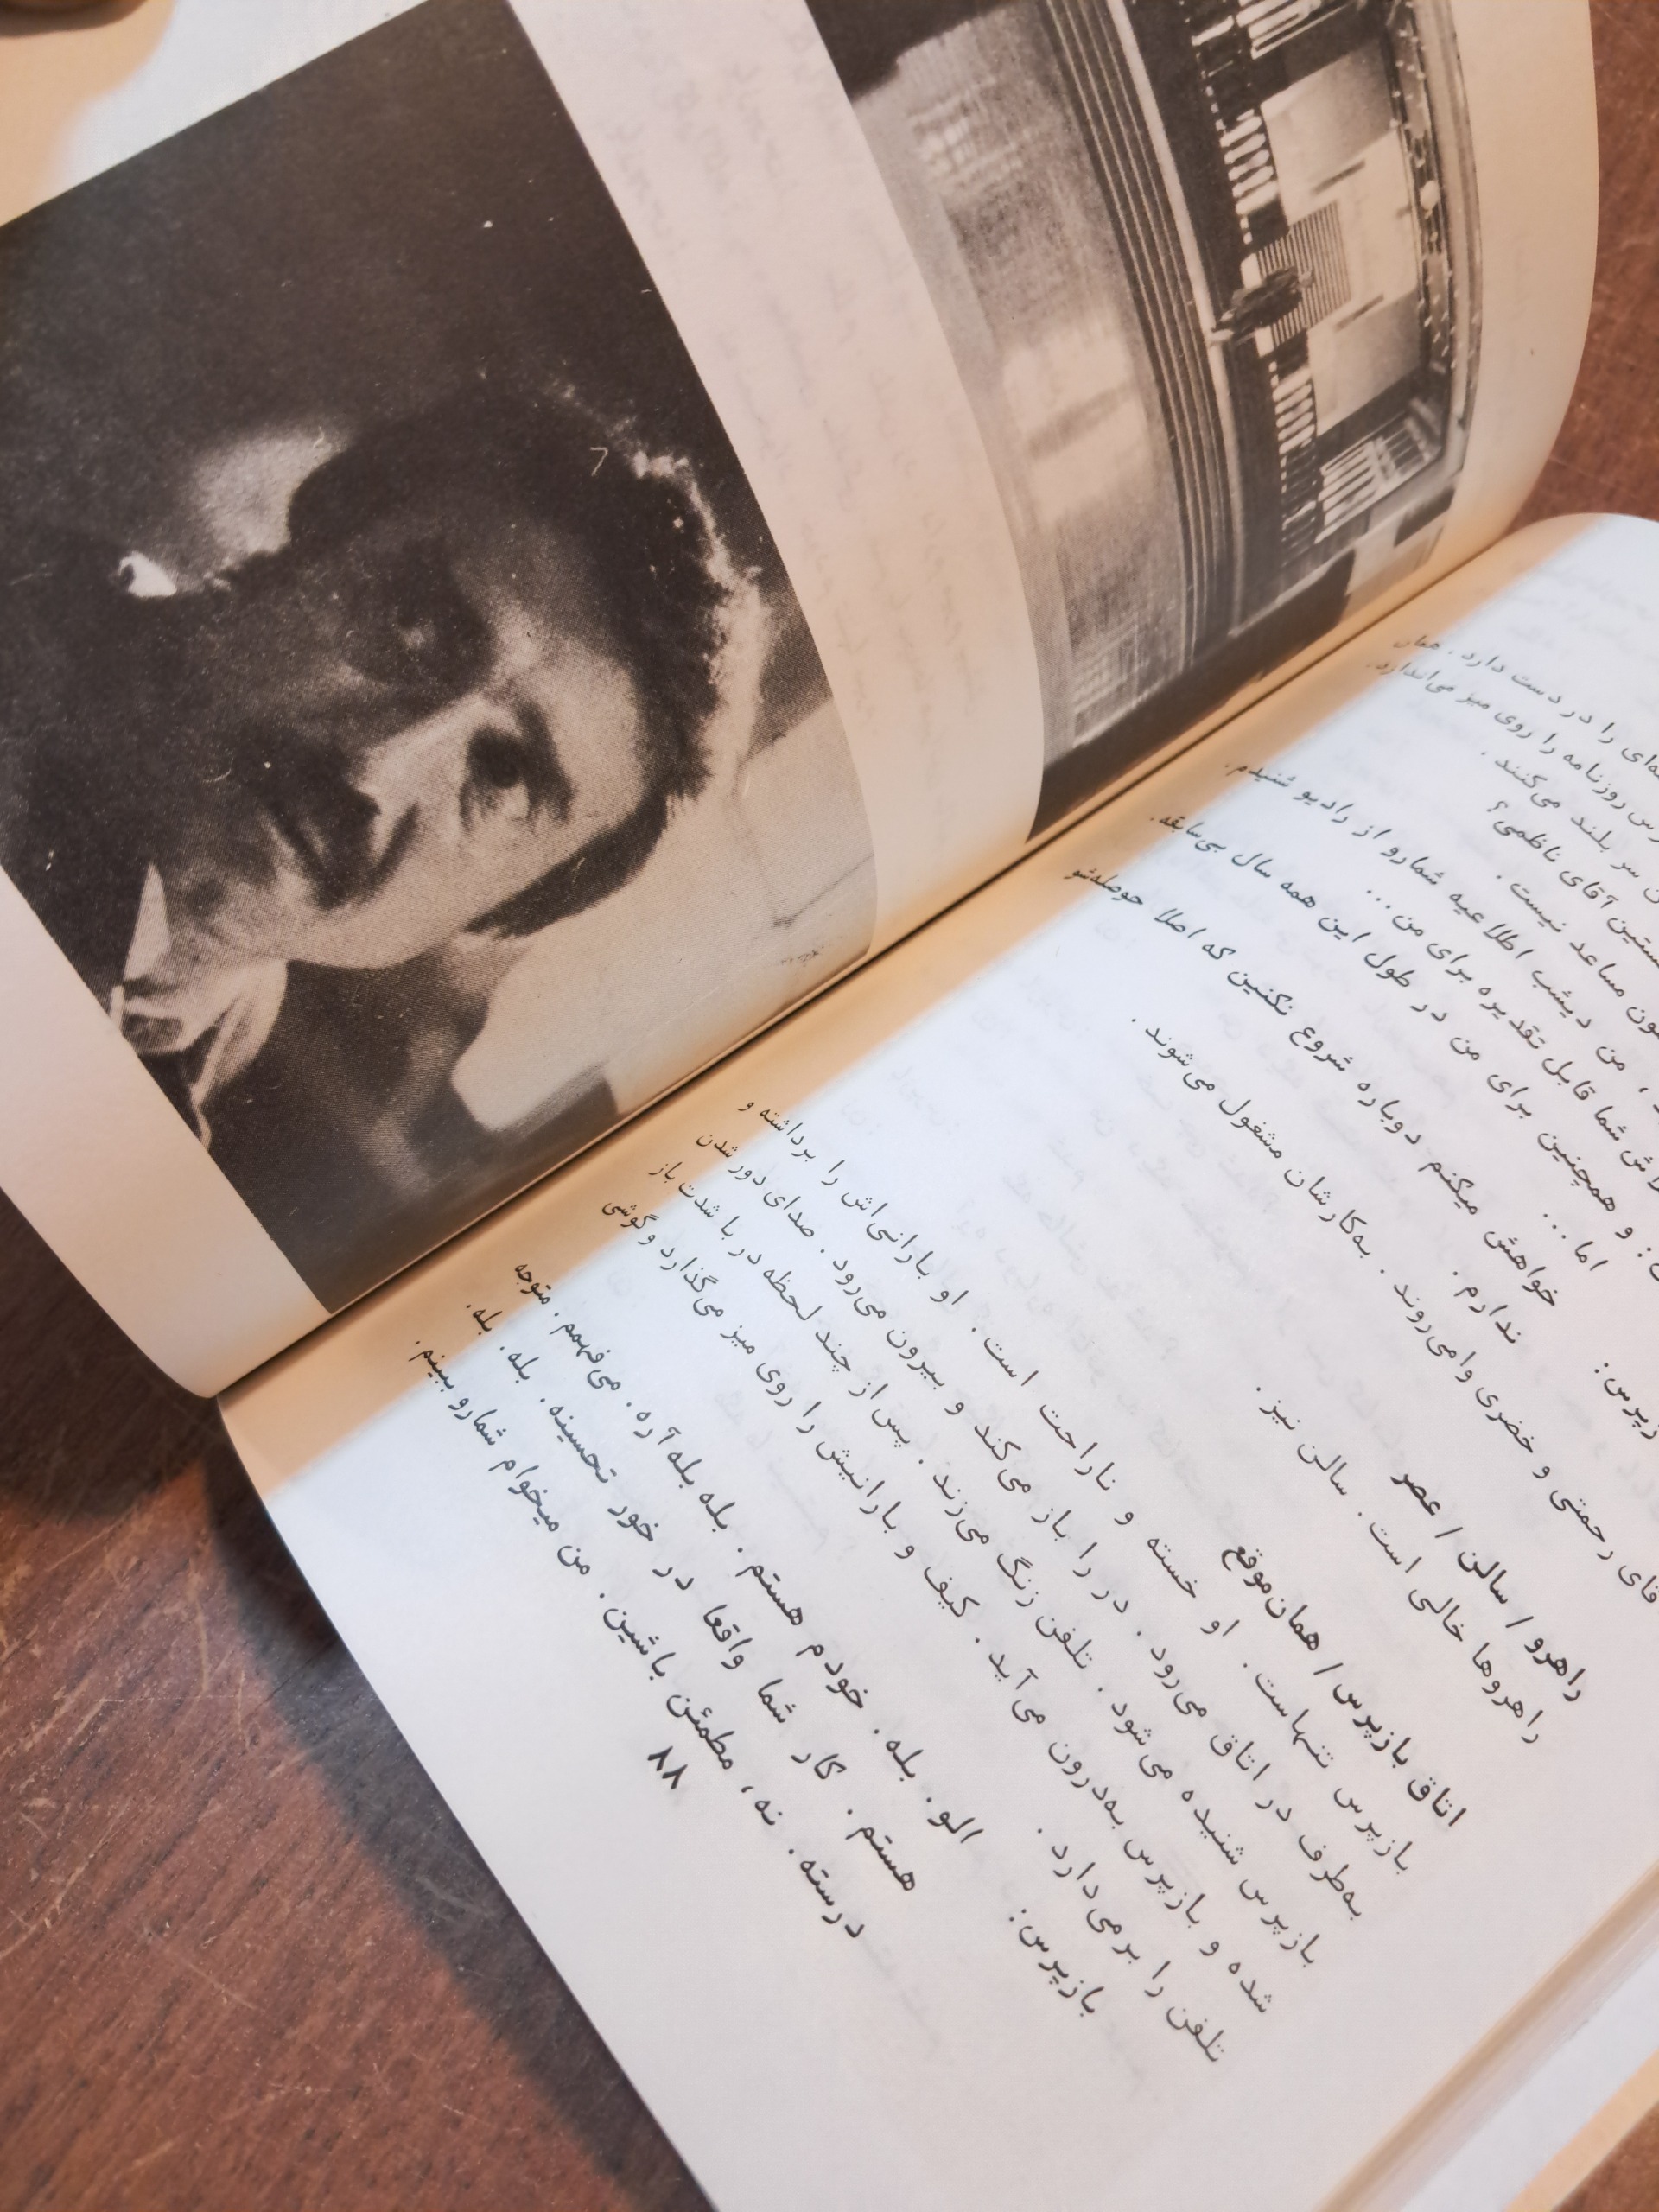 را در دست دارد. همان
روزنامه را روی میز می‌اندازد.
سر بلند می‌کنند.
آقای ناظمی؟
مساعد نیست.
، من دیشب اطلاعیه شمارو از رادیو شنیدم.
شما قابل تقدیره برای من...
و همچنین برای من در طول این همه سال بی‌سابقه.
اما...
خواهش میکنم دوباره شروع نکنین که اصلا حوصله‌شو
ندارم.
رحمتی و خضری وامی‌روند. به‌کارشان مشغول می‌شوند.
راهرو / سالن / عصر
راهروها خالی است. سالن نیز.
اتاق بازپرس / همان‌موقع
بازپرس تنهاست. او خسته و ناراحت است. او بارانی‌اش را برداشته و
به‌طرف در اتاق می‌رود. در را باز می‌کند و بیرون می‌رود. صدای دور شدن
بازپرس شنیده می‌شود. تلفن زنگ می‌زند. پس از چند لحظه در با شدت باز
شده و بازپرس به‌درون می‌آید. کیف و بارانیش را روی میز می‌گذارد و گوشی
تلفن را برمی‌دارد.
بازپرس: الو. بله. خودم هستم. بله بله آره. می‌فهمم. متوجه
هستم. کار شما واقعا در خور تحسینه. بله. بله.
درسته. نه، مطمئن باشین. من میخوام شمارو ببینم.
۸۸